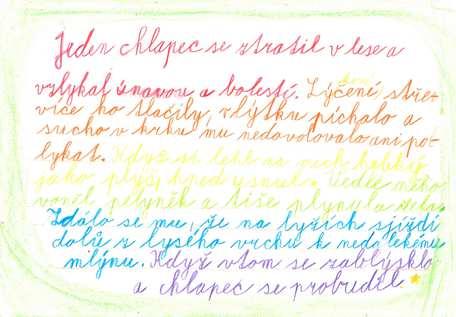 Jeden chlapec se ztratil v lese a
vzlykal únavou a bolestí. Lýčené stře-
více ho tlačily, v lýtku píchalo a
sucho v krku mu nedovolovalo ani pol-
lykat. Když si lehl na mech hebký
jako plyš, hned usnul. Vedle něho
voněl pelyněk a tiše plynula
Zdálo se mu, že na lyžích sjíždí
dolů z lysého vrchu k nedalekému
mlýnu. Když vtom se zablýsklo
a chlapec se probudil.